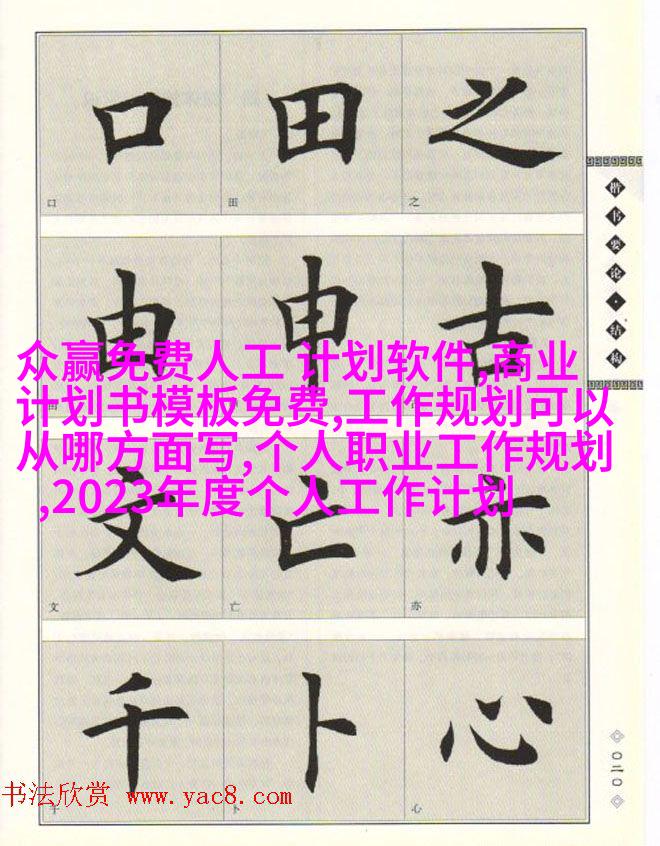 口 田 之
口 田 之
由 申 古
众赢免费人工 计划软件,商业
计划书模板免费,工作规划可以
从哪方面写,个人职业工作规划
,2023年度个人工作计划
文 亡 亦
文 亡 亦
千 卜 心
千 卜 心
楷书要论·结构
〇二〇
书法欣赏 www.yac8.com